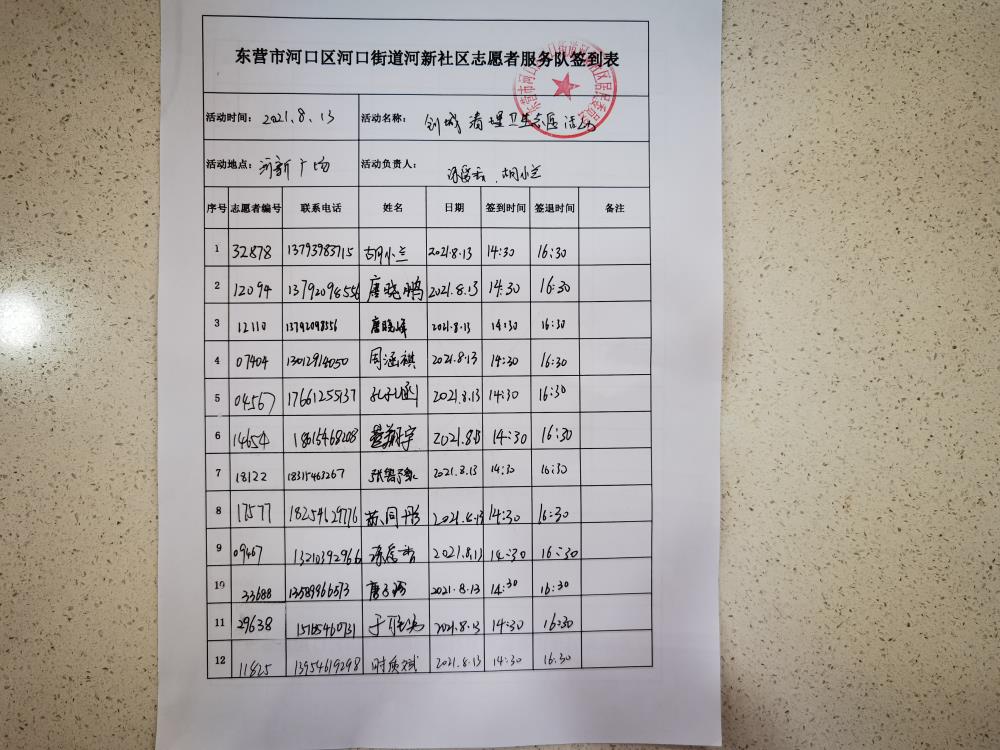 东营市河口区河口街道河新社区志愿者服务队签到表
活动时间： 2021.8.13 活动名称： 创城清理卫生志愿活动
活动地点： 河新广场 活动负责人： 胡小兰
序号 志愿者编号 联系电话 姓名 日期 签到时间 签退时间 备注
1 32878 13793983715 胡小兰 2021.8.13 14:30 16:30
2 12094 13792098556 唐晓鹏 2021.8.13 14:30 16:30
3 12110 13792098556 唐晓峰 2021.8.13 14:30 16:30
4 07404 13012914050 周涵祺 2021.8.13 14:30 16:30
5 04567 17661255137 孔子涵 2021.8.13 14:30 16:30
6 14654 18615468208 2021.8.13 14:30 16:30
7 18122 18315463267 2021.8.13 14:30 16:30
8 17577 18254629776 2021.8.13 14:30 16:30
9 09467 13210392966 2021.8.13 14:30 16:30
10 33688 13589966573 2021.8.13 14:30 16:30
11 29638 2021.8.13 14:30 16:30
12 11825 13954619298 时质斌 2021.8.13 14:30 16:30